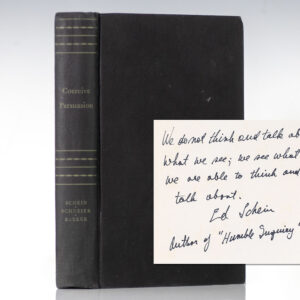 Coercive
Persuasion
SCHEIN
SCHNEIER
BARKER
We do not think and talk ab
what we see; we see what
we are able to think and
talk about.
Ed Schein
Author of "Humble Inquiry"